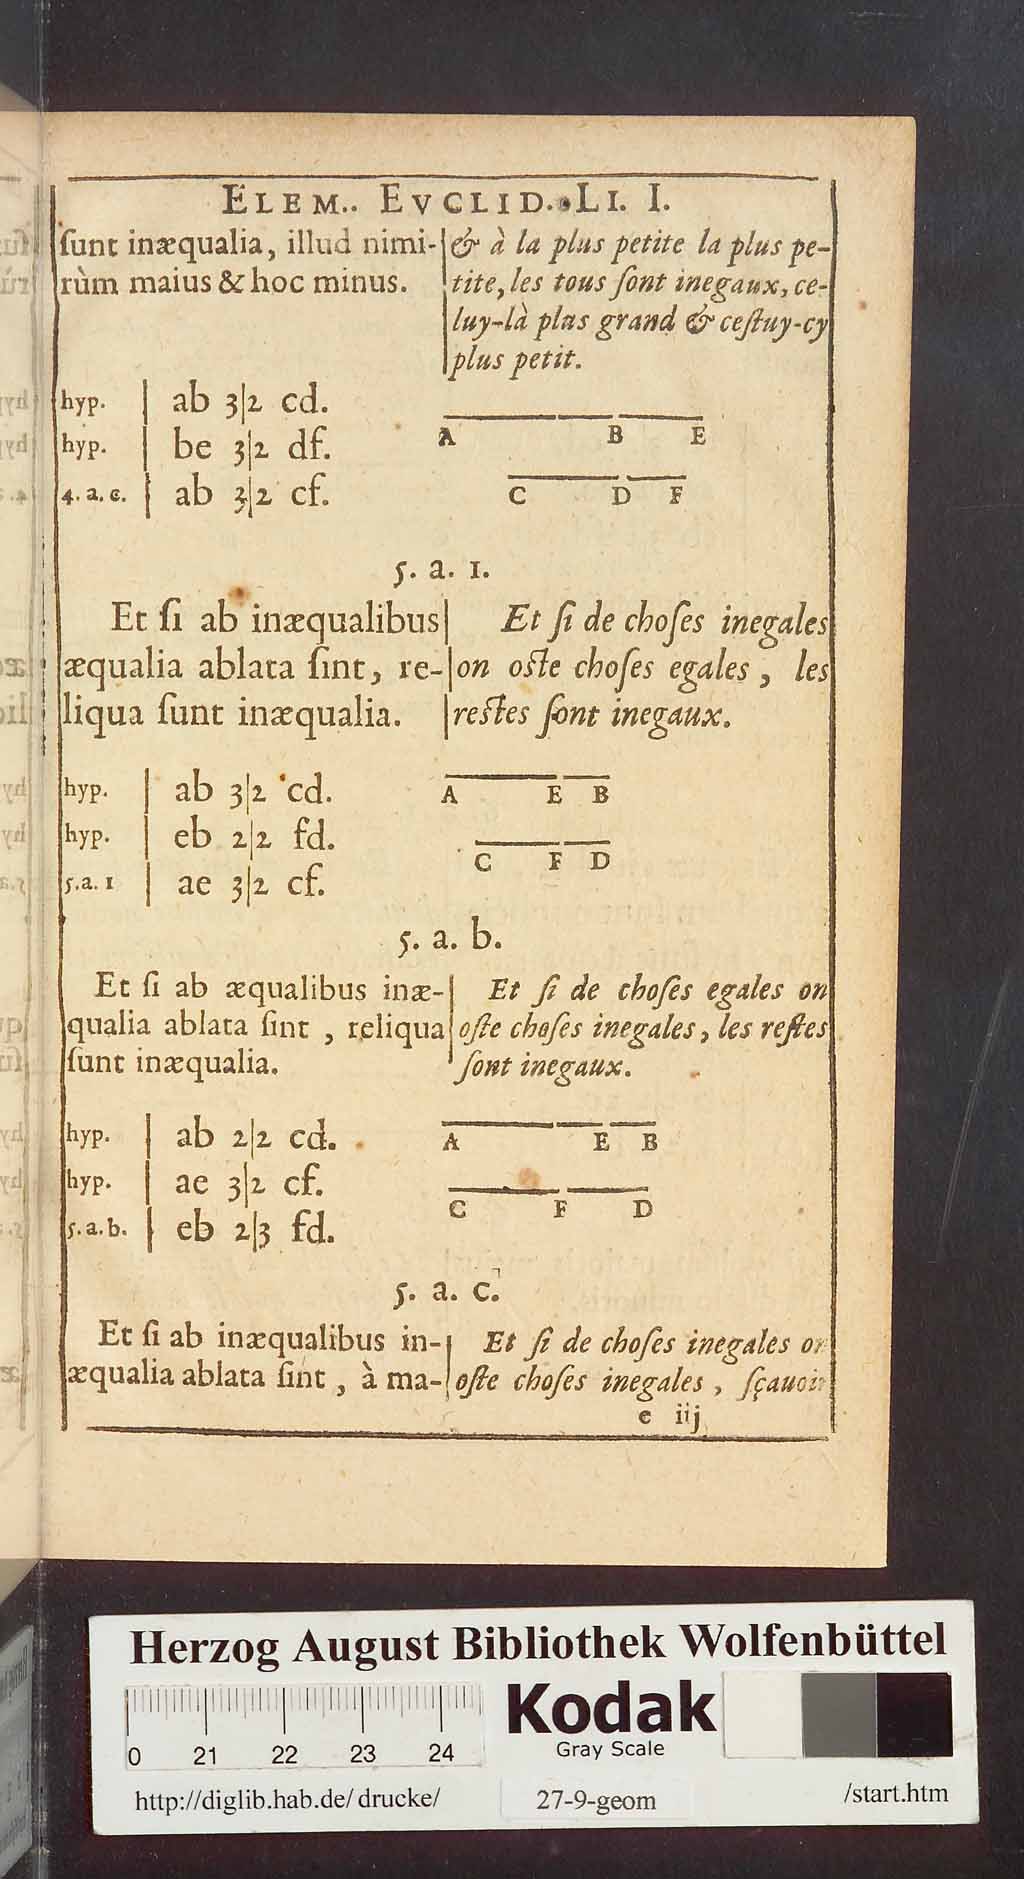 ELEM.. EVCLID. LI. I.
ſunt inæqualia, illud nimi-
rùm maius & hoc minus.
& à la plus petite la plus pe-
tite, les tous ſont inegaux, ce-
luy-là plus grand & ceſtuy-cy
plus petit.
hyp. | ab 3|2 cd.
hyp. | be 3|2 df.
4. a. c. | ab 3|2 cf.
A B E
C D F
5. a. 1.
Et ſi ab inæqualibus
æqualia ablata ſint, re-
liqua ſunt inæqualia.
Et ſi de choſes inegales
on oſte choſes egales, les
reſtes ſont inegaux.
hyp. | ab 3|2 cd.
hyp. | eb 2|2 fd.
5.a. 1 | ae 3|2 cf.
A E B
C F D
5. a. b.
Et ſi ab æqualibus inæ-
qualia ablata ſint, reliqua
ſunt inæqualia.
Et ſi de choſes egales on
oſte choſes inegales, les reſtes
ſont inegaux.
hyp. | ab 2|2 cd.
hyp. | ae 3|2 cf.
5. a. b. | eb 2|3 fd.
A E B
C F D
5. a. c.
Et ſi ab inæqualibus in-
æqualia ablata ſint, à ma-
Et ſi de choſes inegales on
oſte choſes inegales, ſçauoir
e iij
Herzog August Bibliothek Wolfenbüttel
0 21 22 23 24
Kodak
Gray Scale
http://diglib.hab.de/drucke/ 27-9-geom /start.htm